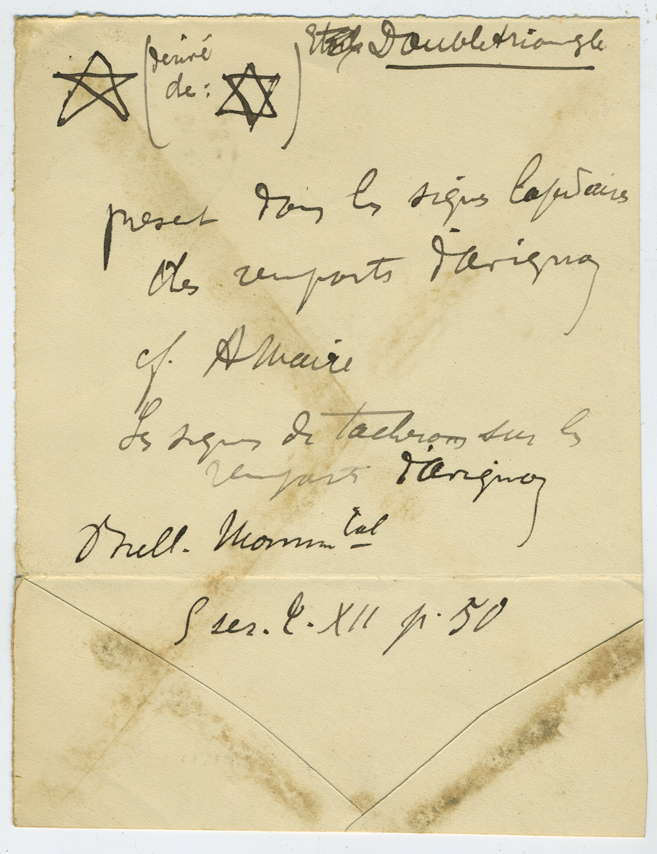 Double triangle
(dérivé
de : )
présent dans les signes lapidaires
des remparts d'Avignon
cf. A Maire
Les signes de tacherons sur les
remparts d'Avignon
Bull. Monum^tal
5 ser. t. XII p. 50